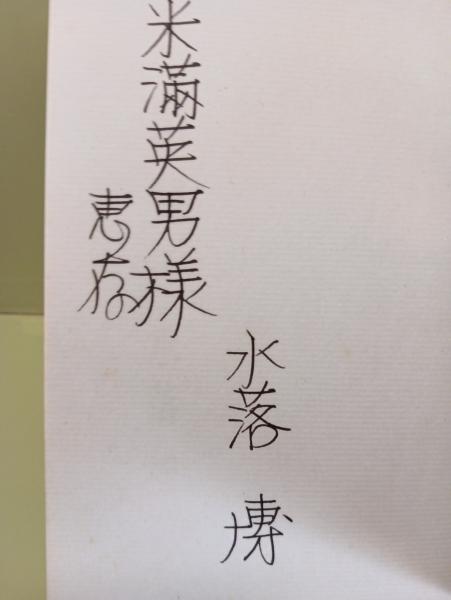 米満英男様
恵存
水落 博